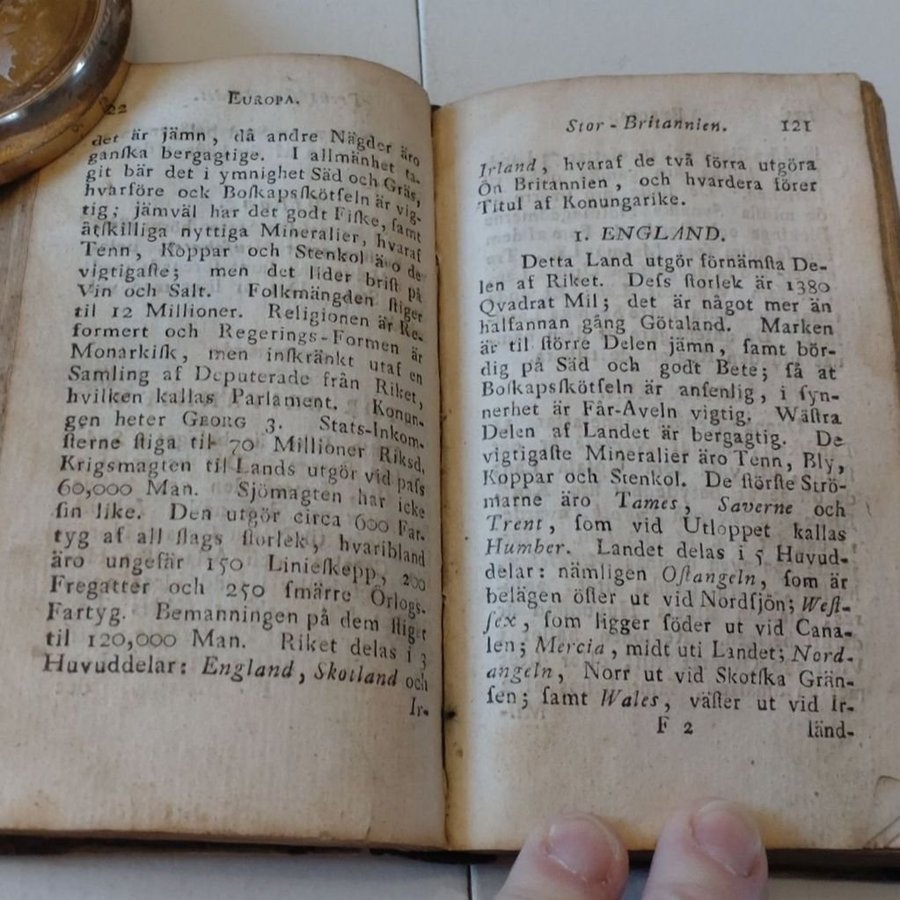 22
EUROPA.
det är jämn, då andre Nägder äro
ganſka bergagtige. I allmänhet ta-
git bär det i ymnighet Säd och Gräs,
hvarföre ock Boſkapsſkötſeln är vig-
tig; jämväl har det godt Fiſke, ſamt
åtſkilliga nyttiga Mineralier, hvaraf
Tenn, Koppar och Stenkol äro de
vigtigaſte; men det lider briſt på
Vin och Salt. Folkmängden ſtiger
til 12 Millioner. Religionen är Re-
formert och Regerings-Formen är
Monarkiſk, men inſkränkt utaf en
Samling af Deputerade från Riket,
hvilken kallas Parlament. Konun-
gen heter GEORG 3. Stats-Inkom-
ſterne ſtiga til 70 Millioner Riksd,
Krigsmagten til Lands utgör vid paſs
60,000 Man. Sjömagten har icke
ſin like. Den utgör circa 600 Far-
tyg af all ſlags ſtorlek, hvaribland
äro ungefär 150 Linieſkepp, 200
Fregatter och 250 ſmärre Örlogs-
Fartyg. Bemanningen på dem ſtiger
til 120,000 Man. Riket delas i 3
Huvuddelar: England, Skotland och
Ir-
Stor-Britannien. 121
Irland, hvaraf de två förra utgöra
Ön Britannien, och hvardera förer
Titul af Konungarike.
1. ENGLAND.
Detta Land utgör förnämſta De-
len af Riket. Deſs ſtorlek är 1380
Qvadrat Mil; det är något mer än
halfannan gång Götaland. Marken
är til ſtörre Delen jämn, ſamt bör-
dig på Säd och godt Bete; ſå at
Boſkapsſkötſeln är anſenlig, i ſyn-
nerhet är Får-Aveln vigtig. Wäſtra
Delen af Landet är bergagtig. De
vigtigaſte Mineralier äro Tenn, Bly,
Koppar och Stenkol. De ſtörſte Strö-
marne äro Tames, Saverne och
Trent, ſom vid Utloppet kallas
Humber. Landet delas i 5 Huvud-
delar: nämligen Oſtangeln, ſom är
belägen öſter ut vid Nordſjön; Weſt-
ſex, ſom ligger ſöder ut vid Cana-
len; Mercia, midt uti Landet; Nord-
angeln, Norr ut vid Skotſka Grän-
ſen; ſamt Wales, väſter ut vid Ir-
F 2 länd-